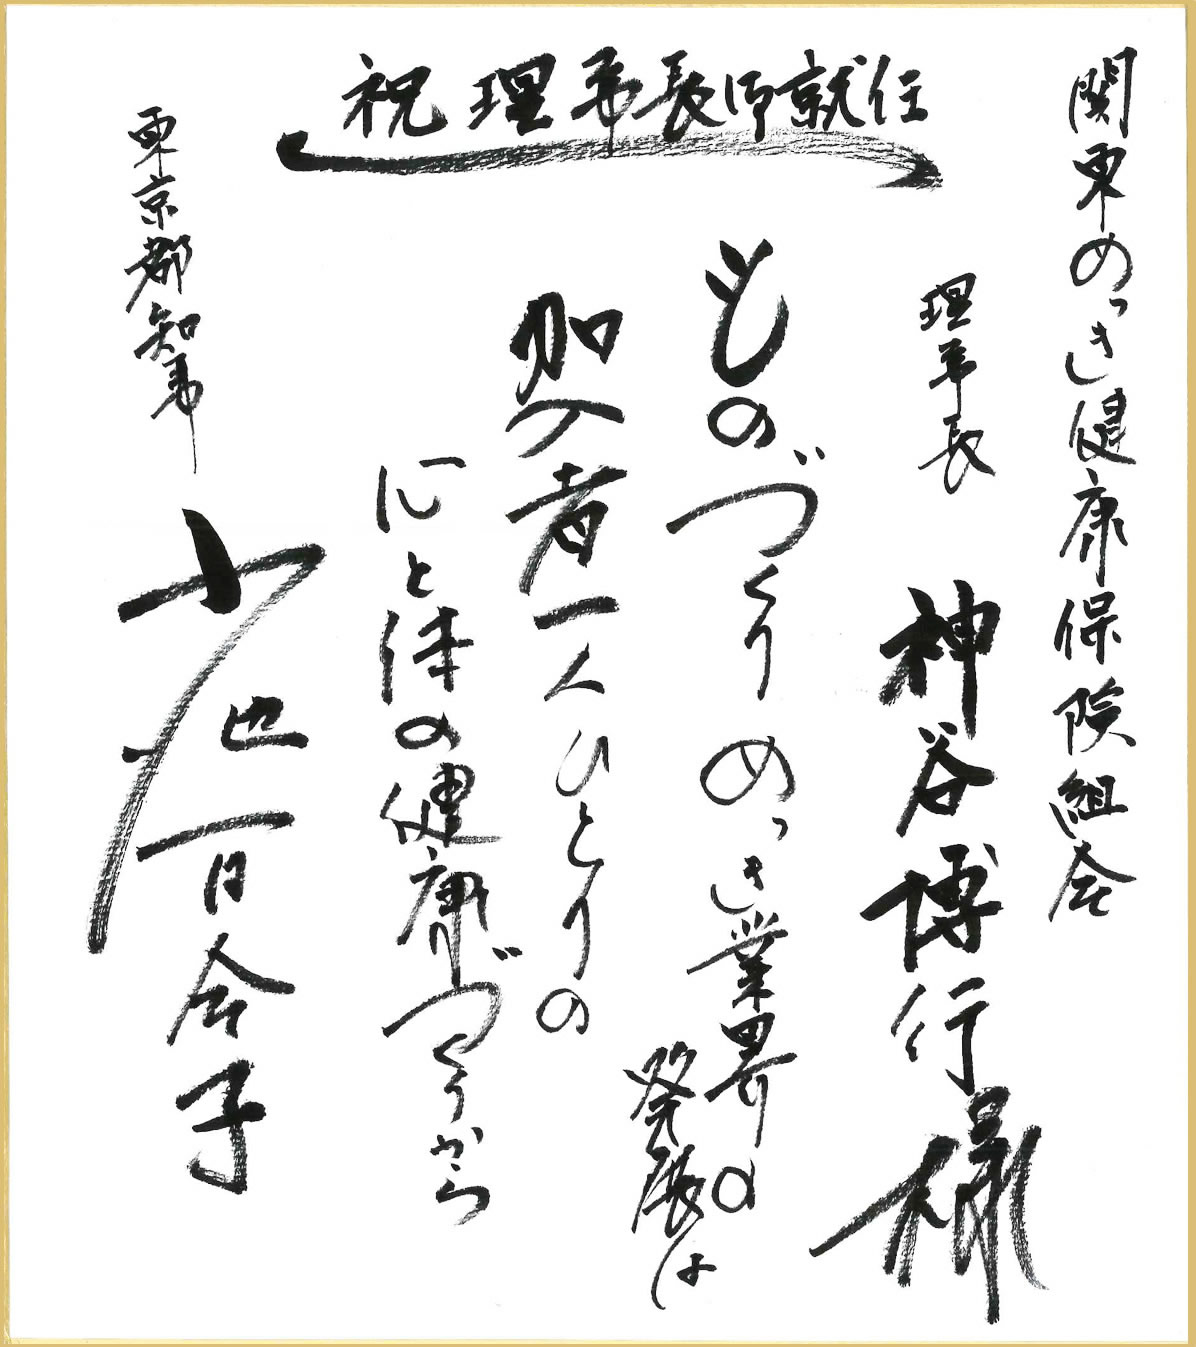 祝 理事長御就任
関東めっき健康保険組合
理事長
神谷博行様
ものづくり めっき業界の
発展は
加入者一人ひとりの
心と体の健康づくりから
東京都知事
小池百合子